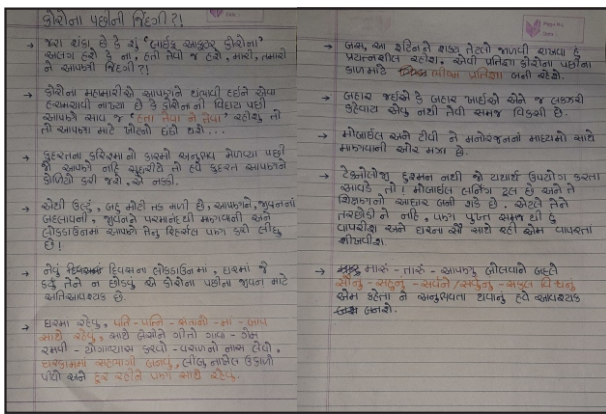 કોરોના પછીની જિંદગી?!
→ જરા શંકા છે કે શું 'લાઈફ આફ્ટર કોરોના'
અલગ હશે કે ના, હતી તેવી જ હશે, મારી, તમારી
ને આપણી જિંદગી?!
→ કોરોના મહામારીએ આપણને થંભાવી દઈને એવા
હચમચાવી નાખ્યા છે કે કોરોનાની વિદાય પછી
આપણે સાવ જ 'હતા તેવા ને તેવા' રહીશું તો
તો આપણા માટે ખોટની ઘડી થશે...
→ કુદરતના કરિશ્માનો કારમો અનુભવ મેળવ્યા પછી
જો આપણે નહિ સુધરીયે તો હવે કુદરત આપણને
કોળિયો કરી જશે, એ નક્કી.
→ એથી ઉલ્ટું, બહુ મોટી તક મળી છે, આપણને, જીવનમાં
બદલાવની, જીવનને પરમાનંદથી માણવાની અને
લોકડાઉનમાં આપણે તેનું રિહર્સલ પણ કરી લીધું
છે!
→ નેવું દિવસના લોકડાઉનમાં, ઘરમાં જે
કર્યું તેને ન છોડવું એ કોરોના પછીના જીવન માટે
અતિઆવશ્યક છે.
→ ઘરમાં રહેવું, પતિ-પત્નિ-સંતાનો-મા-બાપ
સાથે રહેવું, સાથે બેસીને ગીતો ગાવા-ગેમ
રમવી-યોગાભ્યાસ કરવો-વરાળનો નાસ લેવો,
ઘરકામમાં સહભાગી બનવું, લીંબુ નાખેલ ઉકાળો
પીવો અને દૂર રહીને પણ સાથે રહેવું.
→ બસ, આ રૂટિનને શક્ય તેટલો જાળવી રાખવા હું
પ્રયત્નશીલ રહીશ. એવી પ્રતિજ્ઞા કોરોના પછીના
કાળમાટે ભીષ્મ પ્રતિજ્ઞા બની રહેશે.
→ બહાર જઈએ કે બહાર ખાઈએ એને જ લક્ઝરી
કહેવાય એવું નથી તેવી સમજ વિકસી છે.
→ મોબાઈલ અને ટીવી ને મનોરંજનના માધ્યમો સાથે
માણવાની ઓર મઝા છે.
→ ટેકનોલોજી દુશ્મન નથી જો યથાર્થ ઉપયોગ કરતા
આવડે તો! મોબાઈલ લર્નિંગ ટૂલ છે અને તે
શિક્ષણનો આધાર બની શકે છે. એટલે તેને
તરછોડીને નહિ, પણ પુખ્ત સમજથી હું
વાપરીશ અને ઘરના સૌ સાથે રહી એમ વાપરતાં
શીખવીશ
→ મારું - તારું - આપણું બોલવાને બદલે
સૌનું - સહુનું - સર્વનું / સર્વેનું - સકલ વિશ્વનું
એમ કહેતા ને અનુભવતા થવાનું હવે આવશ્યક
બનશે.